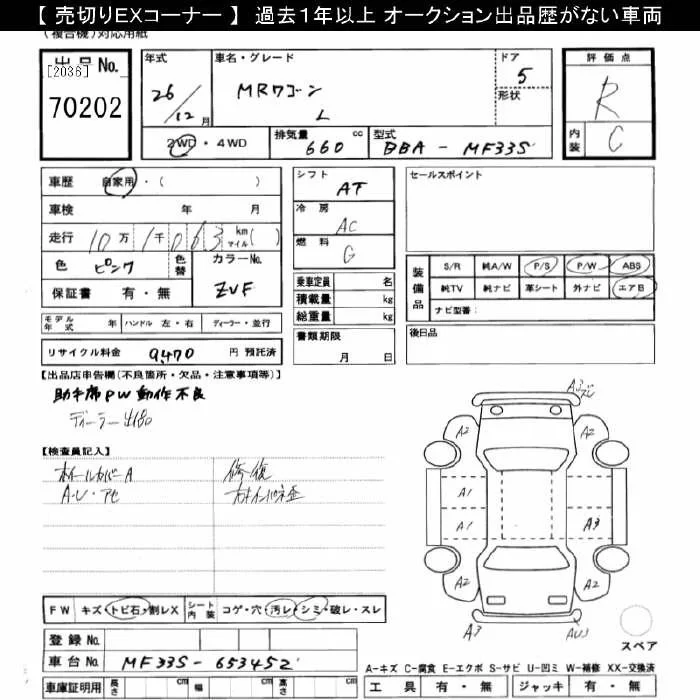 【 売切りEXコーナー 】 過去1年以上 オークション出品歴がない車両
(複合機)対応用紙
出品No.
[2036]
70202
年式
26/12月
車名・グレード
MRワゴン
L
ドア
5
形状
評価点
R
内装
C
2WD・4WD
排気量
660 cc
型式
BBA - MF33S
車歴 自家用・( )
車検 年 月
走行 10万1千063 km マイル( )
色 ピンク 色替
カラーNo.
ZVF
保証書 有・無
シフト
AT
冷房
AC
燃料
G
乗車定員 名
積載量 kg
総重量 kg
書類期限
月 日
セールスポイント
装備品
S/R 純A/W P/S P/W ABS
純TV 純ナビ 革シート 外ナビ エアB
ナビ型番:
後日品
モデル年式 年 ハンドル 左・右 ディーラー・並行
リサイクル料金 9,470 円 預託済
【出品店申告欄(不良箇所・欠品・注意事項等)】
助手席PW動作不良
ディーラー出品
【検査員記入】
ホイールカバーA
A-U・アセ
修復
A3
A2 A2
A1
A1 A3
A2 A2
A3 AU3
スペア
FW キズ・トビ石・割レX シート内装 コゲ・穴・汚レ・シミ・破レ・スレ
登録No.
車台No. MF33S-653452
車庫証明用 長さ cm 幅 cm 高さ cm
A-キズ C-腐食 E-エクボ S-サビ U-凹ミ W-補修 XX-交換済
工具 有・無 ジャッキ 有・無